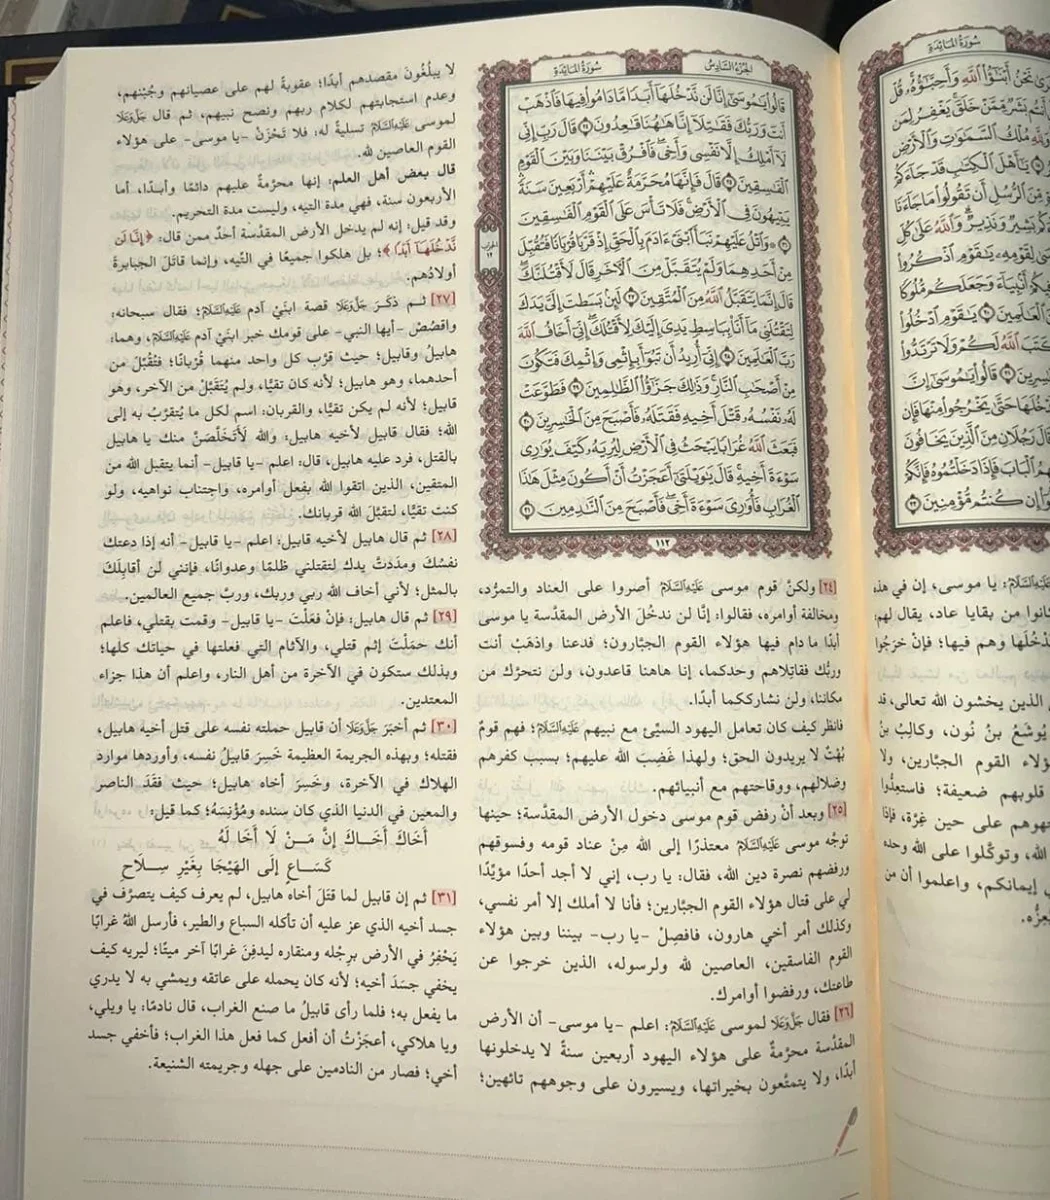 سُورَةُ المَائِدَةِ
الجُزْءُ السَّادِسُ
قَالُوا يَامُوسَىٰ إِنَّا لَن نَّدْخُلَهَا أَبَدًا مَّا دَامُوا فِيهَا فَاذْهَبْ
أَنتَ وَرَبُّكَ فَقَاتِلَا إِنَّا هَاهُنَا قَاعِدُونَ ۝٢٤ قَالَ رَبِّ إِنِّي
لَا أَمْلِكُ إِلَّا نَفْسِي وَأَخِي فَافْرُقْ بَيْنَنَا وَبَيْنَ الْقَوْمِ
الْفَاسِقِينَ ۝٢٥ قَالَ فَإِنَّهَا مُحَرَّمَةٌ عَلَيْهِمْ أَرْبَعِينَ سَنَةً
يَتِيهُونَ فِي الْأَرْضِ فَلَا تَأْسَ عَلَى الْقَوْمِ الْفَاسِقِينَ
۝٢٦ ۞ وَاتْلُ عَلَيْهِمْ نَبَأَ ابْنَيْ آدَمَ بِالْحَقِّ إِذْ قَرَّبَا قُرْبَانًا فَتُقُبِّلَ
مِنْ أَحَدِهِمَا وَلَمْ يُتَقَبَّلْ مِنَ الْآخَرِ قَالَ لَأَقْتُلَنَّكَ
قَالَ إِنَّمَا يَتَقَبَّلُ اللَّهُ مِنَ الْمُتَّقِينَ ۝٢٧ لَئِن بَسَطتَ إِلَيَّ يَدَكَ
لِتَقْتُلَنِي مَا أَنَا بِبَاسِطٍ يَدِيَ إِلَيْكَ لِأَقْتُلَكَ إِنِّي أَخَافُ اللَّهَ
رَبَّ الْعَالَمِينَ ۝٢٨ إِنِّي أُرِيدُ أَن تَبُوءَ بِإِثْمِي وَإِثْمِكَ فَتَكُونَ
مِنْ أَصْحَابِ النَّارِ وَذَٰلِكَ جَزَاؤُا الظَّالِمِينَ ۝٢٩ فَطَوَّعَتْ
لَهُ نَفْسُهُ قَتْلَ أَخِيهِ فَقَتَلَهُ فَأَصْبَحَ مِنَ الْخَاسِرِينَ ۝٣٠
فَبَعَثَ اللَّهُ غُرَابًا يَبْحَثُ فِي الْأَرْضِ لِيُرِيَهُ كَيْفَ يُوَارِي
سَوْءَةَ أَخِيهِ قَالَ يَاوَيْلَتَىٰ أَعَجَزْتُ أَنْ أَكُونَ مِثْلَ هَٰذَا
الْغُرَابِ فَأُوَارِيَ سَوْءَةَ أَخِي فَأَصْبَحَ مِنَ النَّادِمِينَ ۝٣١
الحزب
١٢
١١٢
[٢٤] ولكنَّ قوم موسى عَلَيْهِ السَّلَامُ أصروا على العناد والتمرُّد،
ومخالفة أوامره، فقالوا: إنَّا لن ندخُلَ الأرض المقدَّسة يا موسى
أبدًا ما دام فيها هؤلاء القوم الجبَّارون؛ فدعنا واذهَبْ أنت
وربُّك فقاتِلاهم وحدكما، إنا هاهنا قاعدون، ولن نتحرَّك من
مكاننا، ولن نشاركَكما أبدًا.
فانظر كيف كان تعامل اليهود السيِّئ مع نبيهم عَلَيْهِ السَّلَامُ؛ فهم قومٌ
بُهْتٌ لا يريدون الحق؛ ولهذا غَضِبَ الله عليهم؛ بسبب كفرهم
وضلالهم، ووقاحتهم مع أنبيائهم.
[٢٥] وبعد أنْ رفض قوم موسى دخول الأرض المقدَّسة؛ حينها
توجَّه موسى عَلَيْهِ السَّلَامُ معتذرًا إلى الله مِنْ عناد قومه وفسوقهم
ورفضهم نصرة دين الله، فقال: يا رب، إني لا أجد أحدًا مؤيِّدًا
لي على قتال هؤلاء القوم الجبَّارين؛ فأنا لا أملك إلا أمر نفسي،
وكذلك أمر أخي هارون، فافصِلْ -يا رب- بيننا وبين هؤلاء
القوم الفاسقين، العاصين لله ولرسوله، الذين خرجوا عن
طاعتك، ورفضوا أوامرك.
[٢٦] فقال جَلَّ وَعَلَا لموسى عَلَيْهِ السَّلَامُ: اعلم -يا موسى- أن الأرض
المقدَّسة محرَّمةٌ على هؤلاء اليهود أربعين سنةً لا يدخلونها
أبدًا، ولا يتمتَّعون بخيراتها، ويسيرون على وجوههم تائهين؛
لا يبلُغُونَ مقصدهم أبدًا؛ عقوبةً لهم على عصيانهم وجُبْنهم،
وعدم استجابتهم لكلام ربهم ونصح نبيهم، ثم قال جَلَّ وَعَلَا
لموسى عَلَيْهِ السَّلَامُ تسليةً له: فلا تَحْزَنْ -يا موسى- على هؤلاء
القوم العاصين لله.
قال بعض أهل العلم: إنها محرَّمةٌ عليهم دائمًا وأبدًا، أما
الأربعون سنة، فهي مدة التيه، وليست مدة التحريم.
وقد قيل: إنه لم يدخل الأرض المقدَّسة أحدٌ ممن قال: ﴿إِنَّا لَن
نَّدْخُلَهَا أَبَدًا﴾؛ بل هلكوا جميعًا في التِّيه، وإنما قاتَلَ الجبابرةَ
أولادُهم.
[٢٧] ثم ذكَرَ جَلَّ وَعَلَا قصة ابنَيْ آدم عَلَيْهِ السَّلَامُ؛ فقال سبحانه:
واقصُصْ -أيها النبي- على قومك خبر ابنَيْ آدم عَلَيْهِ السَّلَامُ، وهما:
هابيلُ وقابيل؛ حيث قرَّب كل واحد منهما قُرْبانًا؛ فتُقُبِّلَ من
أحدهما، وهو هابيل؛ لأنه كان تقيًّا، ولم يُتَقَبَّلْ من الآخر، وهو
قابيل؛ لأنه لم يكن تقيًّا، والقربان: اسم لكل ما يُتقرَّبُ به إلى
الله؛ فقال قابيل لأخيه هابيل: والله لَأَتَخلَّصَنَّ منك يا هابيل
بالقتل، فرد عليه هابيل، قال: اعلم -يا قابيل- أنما يتقبل الله من
المتقين، الذين اتقوا الله بفعل أوامره، واجتناب نواهيه، ولو
كنت تقيًّا، لتقبَّل الله قربانك.
[٢٨] ثم قال هابيل لأخيه قابيل: اعلم -يا قابيل- أنه إذا دعتك
نفسُكَ ومدَدتَّ يدك لتقتلني ظلمًا وعدوانًا، فإنني لن أقابِلَكَ
بالمثل؛ لأني أخاف الله ربي وربك، وربَّ جميع العالمين.
[٢٩] ثم قال هابيل: فإنْ فعَلْتَ -يا قابيل- وقمت بقتلي، فاعلم
أنك حمَلْتَ إثم قتلي، والآثام التي فعلتها في حياتك كلها؛
وبذلك ستكون في الآخرة من أهل النار، واعلم أن هذا جزاء
المعتدين.
[٣٠] ثم أخبَرَ جَلَّ وَعَلَا أن قابيل حملته نفسه على قتل أخيه هابيل،
فقتله؛ وبهذه الجريمة العظيمة خَسِرَ قابيلُ نفسه، وأوردها موارد
الهلاك في الآخرة، وخَسِرَ أخاه هابيل؛ حيث فقَدَ الناصر
والمعين في الدنيا الذي كان سنده ومُؤْنِسَهُ؛ كما قيل:
أَخَاكَ أَخَـاكَ إِنَّ مَـنْ لَا أَخَا لَهُ
كَسَـاعٍ إِلَى الهَيْجَا بِغَيْرِ سِـلَاحِ
[٣١] ثم إن قابيل لما قتَلَ أخاه هابيل، لم يعرف كيف يتصرَّف في
جسد أخيه الذي عز عليه أن تأكله السباع والطير، فأرسل اللهُ غرابًا
يَحْفِرُ في الأرض برِجْله ومنقاره ليدفِنَ غرابًا آخر ميتًا؛ ليريه كيف
يخفي جسَدَ أخيه؛ لأنه كان يحمله على عاتقه ويمشي به لا يدري
ما يفعل به؛ فلما رأى قابيلُ ما صنع الغراب، قال نادمًا: يا ويلي،
ويا هلاكي، أعجَزْتُ أن أفعل كما فعل هذا الغراب؛ فأخفي جسد
أخي؛ فصار من النادمين على جهله وجريمته الشنيعة.
سُورَةُ المَائِدَةِ
نَحْنُ أَبْنَاؤُا اللَّهِ وَأَحِبَّاؤُهُ قُلْ
بَشَرٌ مِّمَّنْ خَلَقَ يَغْفِرُ لِمَن
مُلْكُ السَّمَاوَاتِ وَالْأَرْضِ
يَا أَهْلَ الْكِتَابِ قَدْ جَاءَكُمْ
مِّنَ الرُّسُلِ أَن تَقُولُوا مَا جَاءَنَا
بَشِيرٌ وَنَذِيرٌ وَاللَّهُ عَلَىٰ كُلِّ
لِقَوْمِهِ يَاقَوْمِ اذْكُرُوا
فِيكُمْ أَنبِيَاءَ وَجَعَلَكُم مُّلُوكًا
يَاقَوْمِ ادْخُلُوا
كَتَبَ اللَّهُ لَكُمْ وَلَا تَرْتَدُّوا
قَالُوا يَامُوسَىٰ إِنَّ
حَتَّىٰ يَخْرُجُوا مِنْهَا فَإِن
قَالَ رَجُلَانِ مِنَ الَّذِينَ يَخَافُونَ
الْبَابَ فَإِذَا دَخَلْتُمُوهُ فَإِنَّكُمْ
إِن كُنتُم مُّؤْمِنِينَ ۝٢٣
يا موسى، إن في هذه
من بقايا عاد، يقال لهم:
وهم فيها؛ فإنْ خرَجُوا
الذين يخشون الله تعالى، قد
يُوشَعُ بنُ نُون، وكالِبُ بنُ
القوم الجبَّارين، ولا
قلوبهم ضعيفة؛ فاستعِدُّوا
على حين غِرَّة، فإذا
الله، وتوكَّلوا على الله وحده
إيمانكم، واعلموا أن من